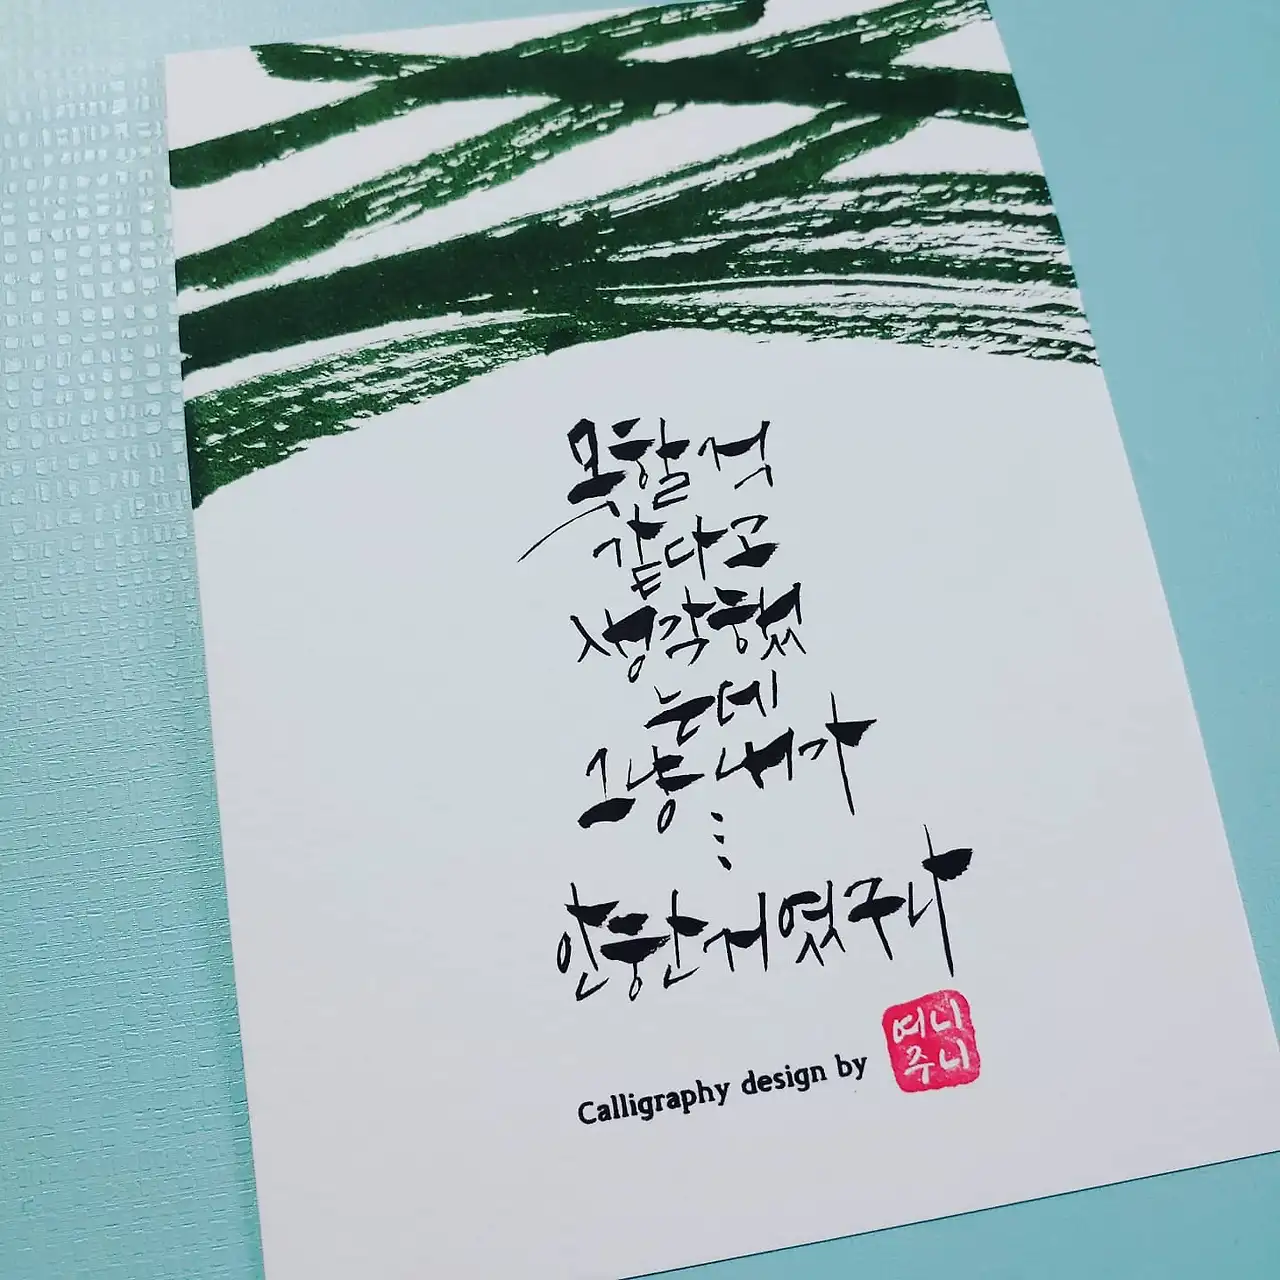 못할것
같다고
생각했
는데
그냥내가
...
안한거였구나
Calligraphy design by
여니
주니